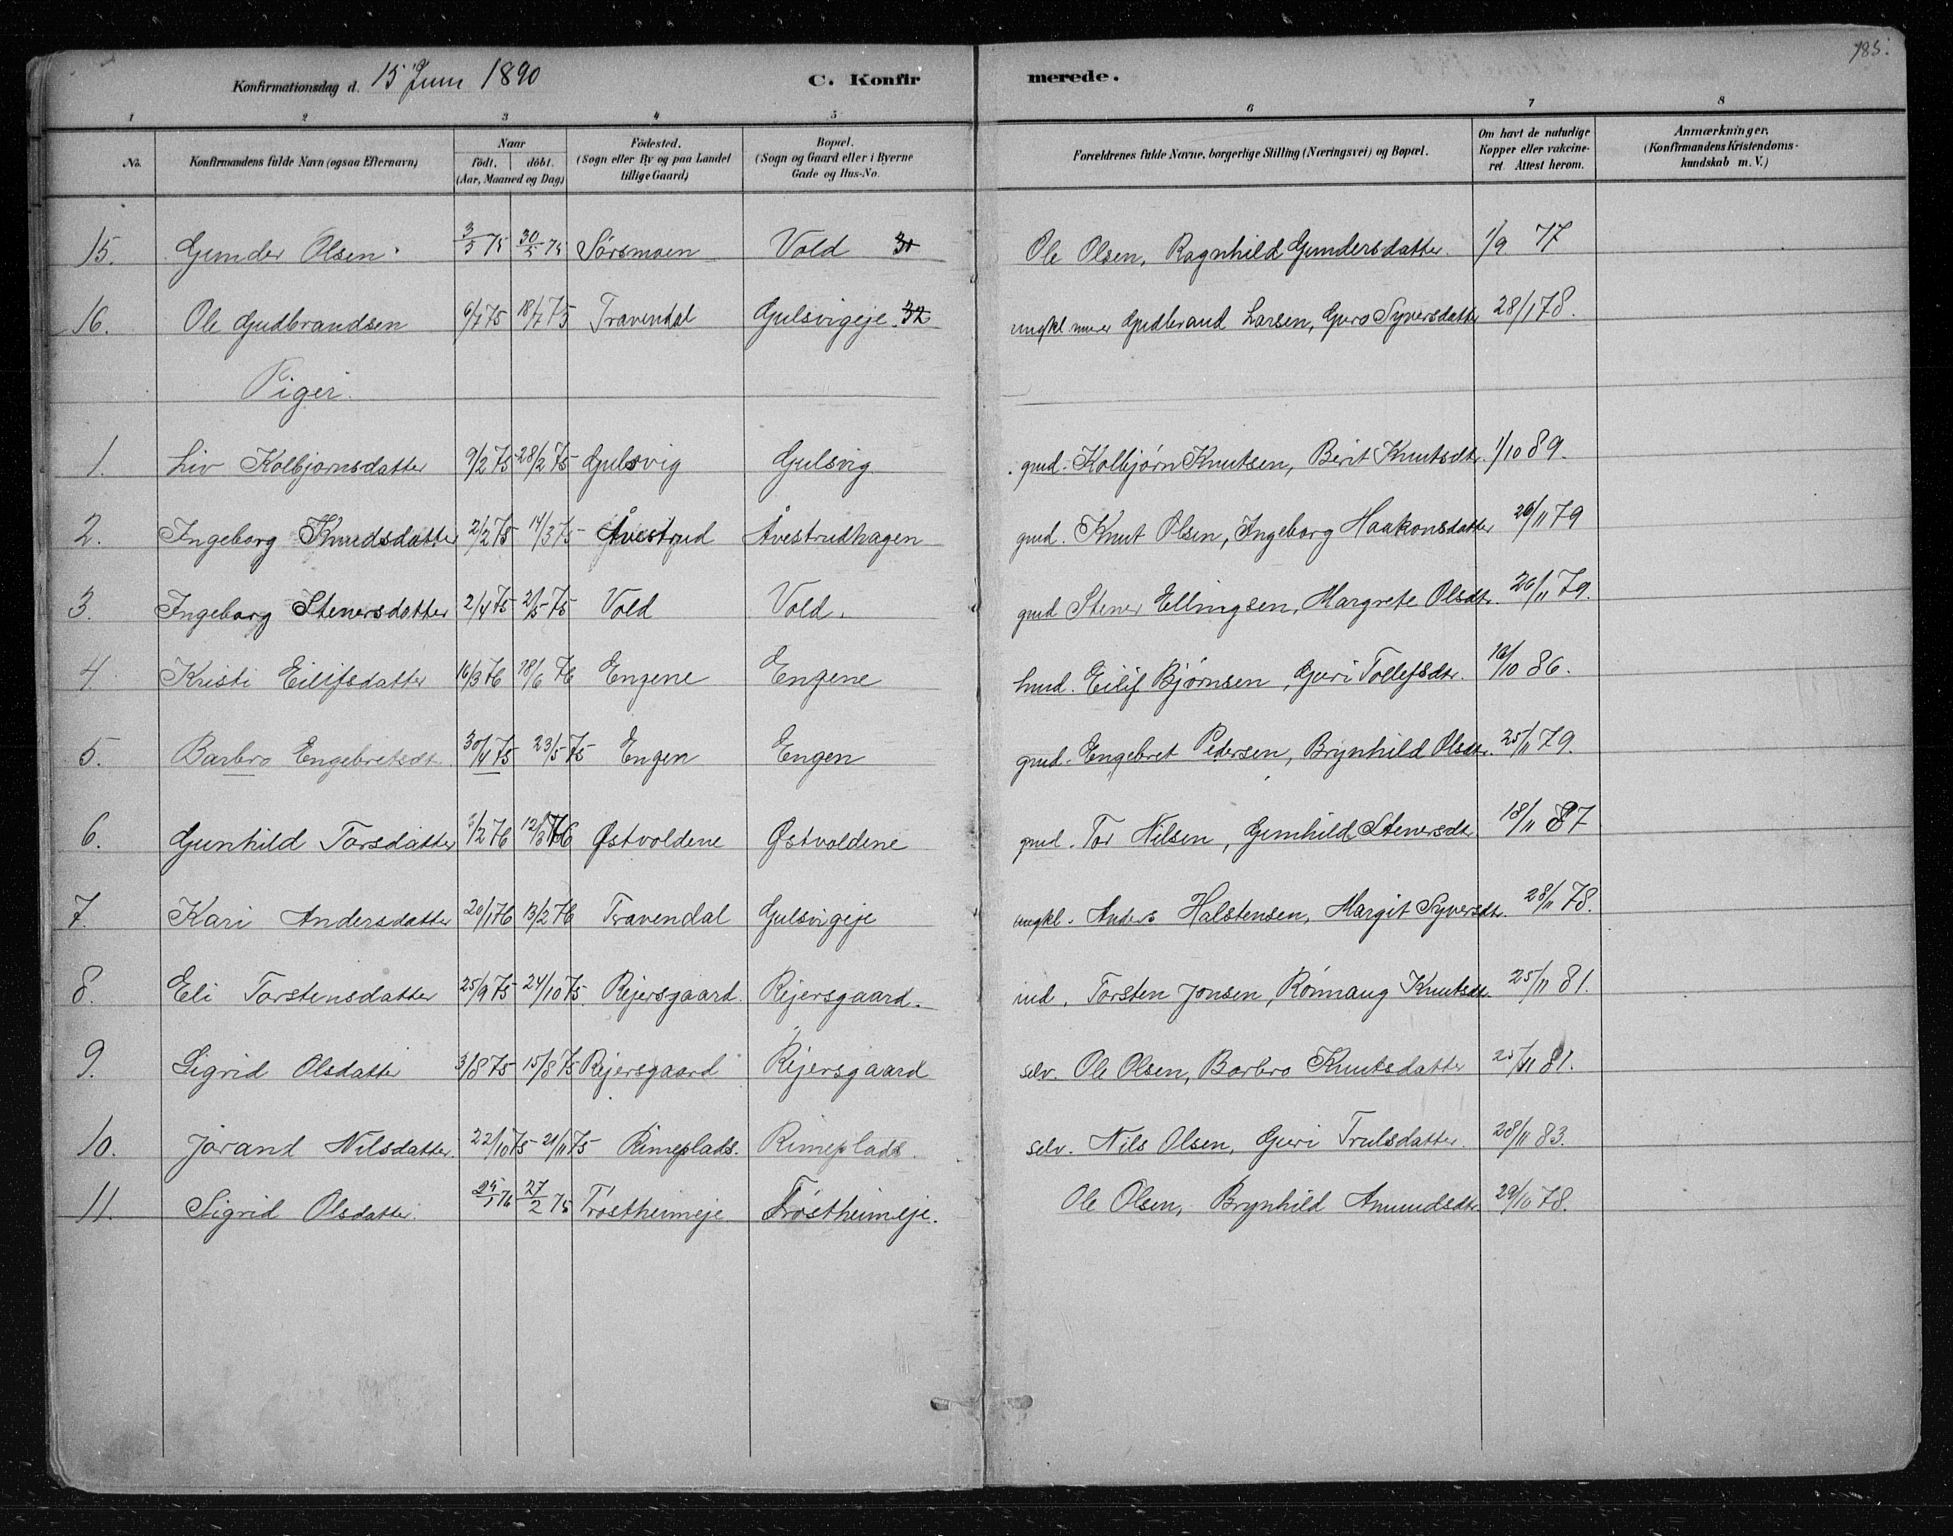 185.
Konfirmationsdag d. 15 Juni 1890 C. Konfirmerede.
1 2 3 4 5 6 7 8
No. Konfirmandens fulde Navn (ogsaa Efternavn) Naar födt. döbt. (Aar, Maaned og Dag) Födested. (Sogn eller By og paa Landet tillige Gaard) Bopæl. (Sogn og Gaard eller i Byerne Gade og Hus-No. Forældrenes fulde Navne, borgerlige Stilling (Næringsvei) og Bopæl. Om havt de naturlige Kopper eller vakcineret. Attest herom. Anmærkninger. (Konfirmandens Kristendomskundskab m. V.)
15. Gunder Olsen 3/5 75 30/5 75 Sørsmoen Vold 31 Ole Olsen, Ragnhild Gundersdatter. 1/9 77
16. Ole Gudbrandsen 6/7 75 18/7 75 Travendal Gulsvigeje. 32 ungkl Gudbrand Larsen, Guro Syversdatter 28/1 78.
Piger.
1. Liv Kolbjørnsdatter 9/2 75 28/2 75 Gulsvig Gulsvig gmd. Kolbjørn Knutsen, Berit Knutsdtr. 1/10 89.
2. Ingeborg Knudsdatter 2/2 75 14/3 75 Åvestrud Åvestrudhagen gmd. Knut Olsen, Ingeborg Haakonsdatter 26/11 79
3. Ingeborg Stenersdatter 2/4 75 2/5 75 Vold Vold. gmd Stener Ellingsen, Margrete Olsdtr. 26/11 79.
4. Kristi Eilifsdatter 16/3 76 18/6 76 Engene Engene hmd. Eilif Bjørnsen, Guri Tollefsdtr. 16/10 86.
5. Barbro Engebretsdt. 30/4 75 23/5 75 Engen Engen gmd. Engebret Pedersen, Brynhild Olsdtr. 25/11 79.
6. Gunhild Torsdatter /2 76 12/3 76 Østvoldene Østvoldene gmd. Tor Nilsen, Gunhild Stenersdtr 18/11 87
7. Kari Andersdatter 20/1 76 13/2 76 Travendal Gulsvigeje ungkl. Anders Halstensen, Margit Syversdtr. 28/11 78.
8. Eli Torstensdatter 25/9 75 24/10 75 Rejersgaard. Rejersgaard. ind. Torsten Jonsen, Rønnaug Knutsdtr. 25/11 81.
9. Sigrid Olsdatter 3/8 75 15/8 75 Rejersgaard Rejersgaard selv. Ole Olsen, Barbro Knutsdatter 25/11 81.
10. Jørand Nilsdatter. 22/10 75 21/11 75 Rimeplads. Rimeplads. selv. Nils Olsen, Guri Trulsdatter. 28/11 83.
11. Sigrid Olsdatter. 24/1 76 27/2 75 Trøstheimeje Trøstheimeje. Ole Olsen, Brynhild Amundsdtr 29/10 78.